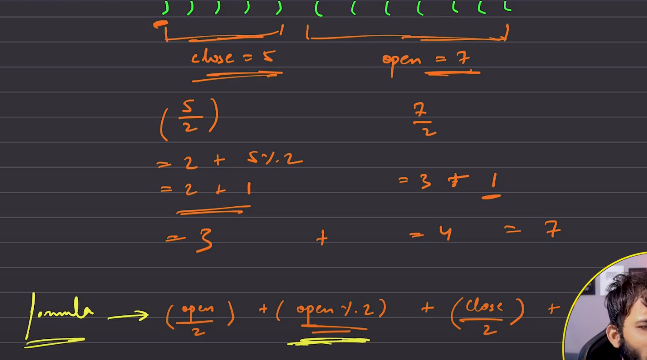 ) ) ) ) ) ( ( ( ( ( ( (
close = 5 open = 7
(5/2) 7/2
= 2 + 5%2
= 2 + 1 = 3 + 1
= 3 + = 4 = 7
formula → (open/2) + (open%2) + (close/2) +